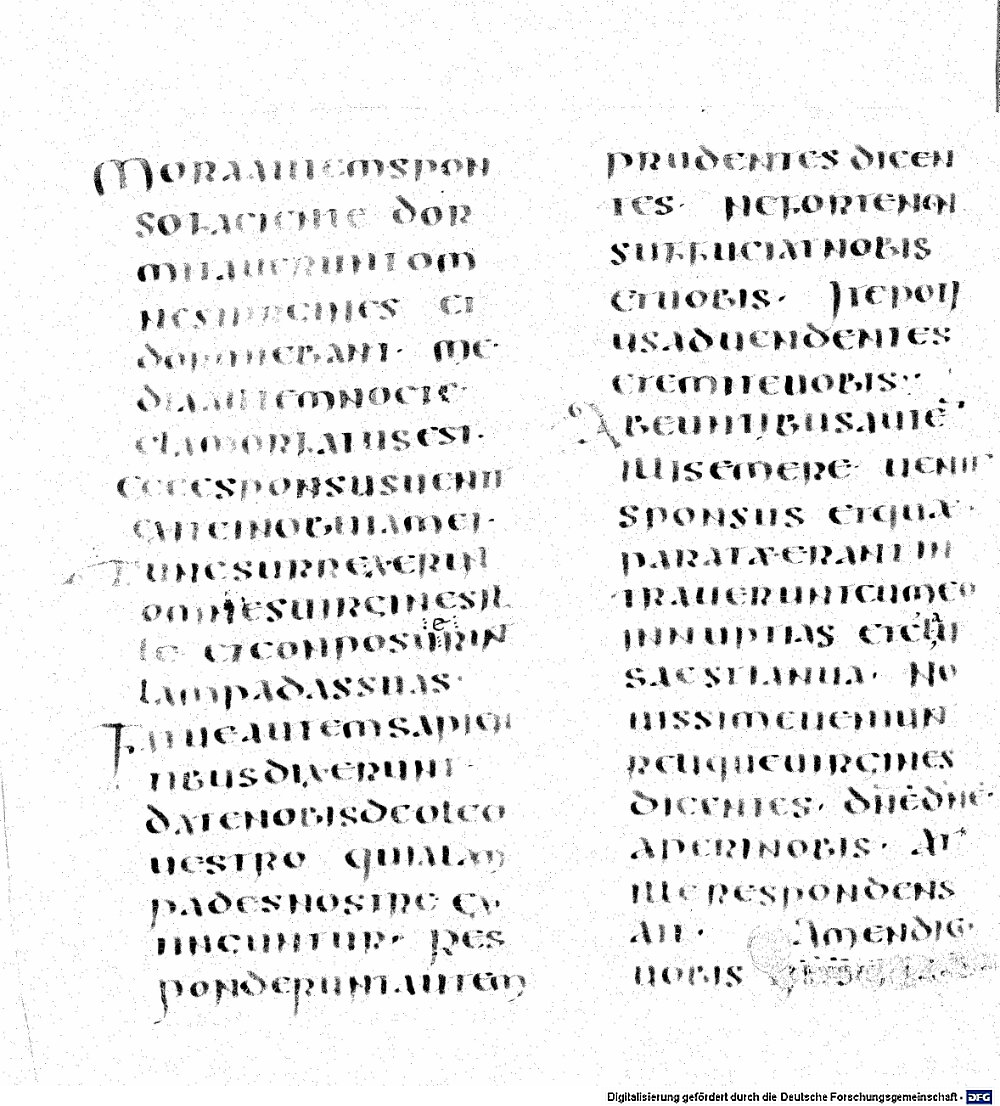 MORAAUTEMSPON
SOFACIENTE DOR
MITAUERUNTOM
NESUIRGINES ET
DORMIEBANT· ME
DIAAUTEMNOCTE·
CLAMORFATUSEST·
ECCESPONSUSUENIT
EXITEINOBUIAMEI·
TUNCSURREXERUNT
OMNESUIRGINESIL
LE ETCONPOSUERUNT
LAMPADASSUAS·
FATUEAUTEMSAPIEN
TIBUSDIXERUNT·
DATENOBISDEOLEO
UESTRO QUIALAM
PADESNOSTRE EX
TINCUNTUR· RES
PONDERUNTAUTEM
PRUDENTES DICEN
TES· NEFORTENON
SUFFICIATNOBIS
ETUOBIS· ITEPOTI
USADUENDENTES
ETEMITEUOBIS·
ABEUNTIBUSAUTĒ
ILLISEMERE· UENIT
SPONSUS ETQUAE
PARATAEERANT IN
TRAUERUNTCUMEO
INNUPTIAS ETCLU
SAESTIANUA· NO
UISSIMEUENIUN
RELIQUEUIRGINES
DICENTES· DN̄EDN̄E·
APERINOBIS· AT
ILLERESPONDENS
AIT· AMENDICO
UOBIS
Digitalisierung gefördert durch die Deutsche Forschungsgemeinschaft - DFG